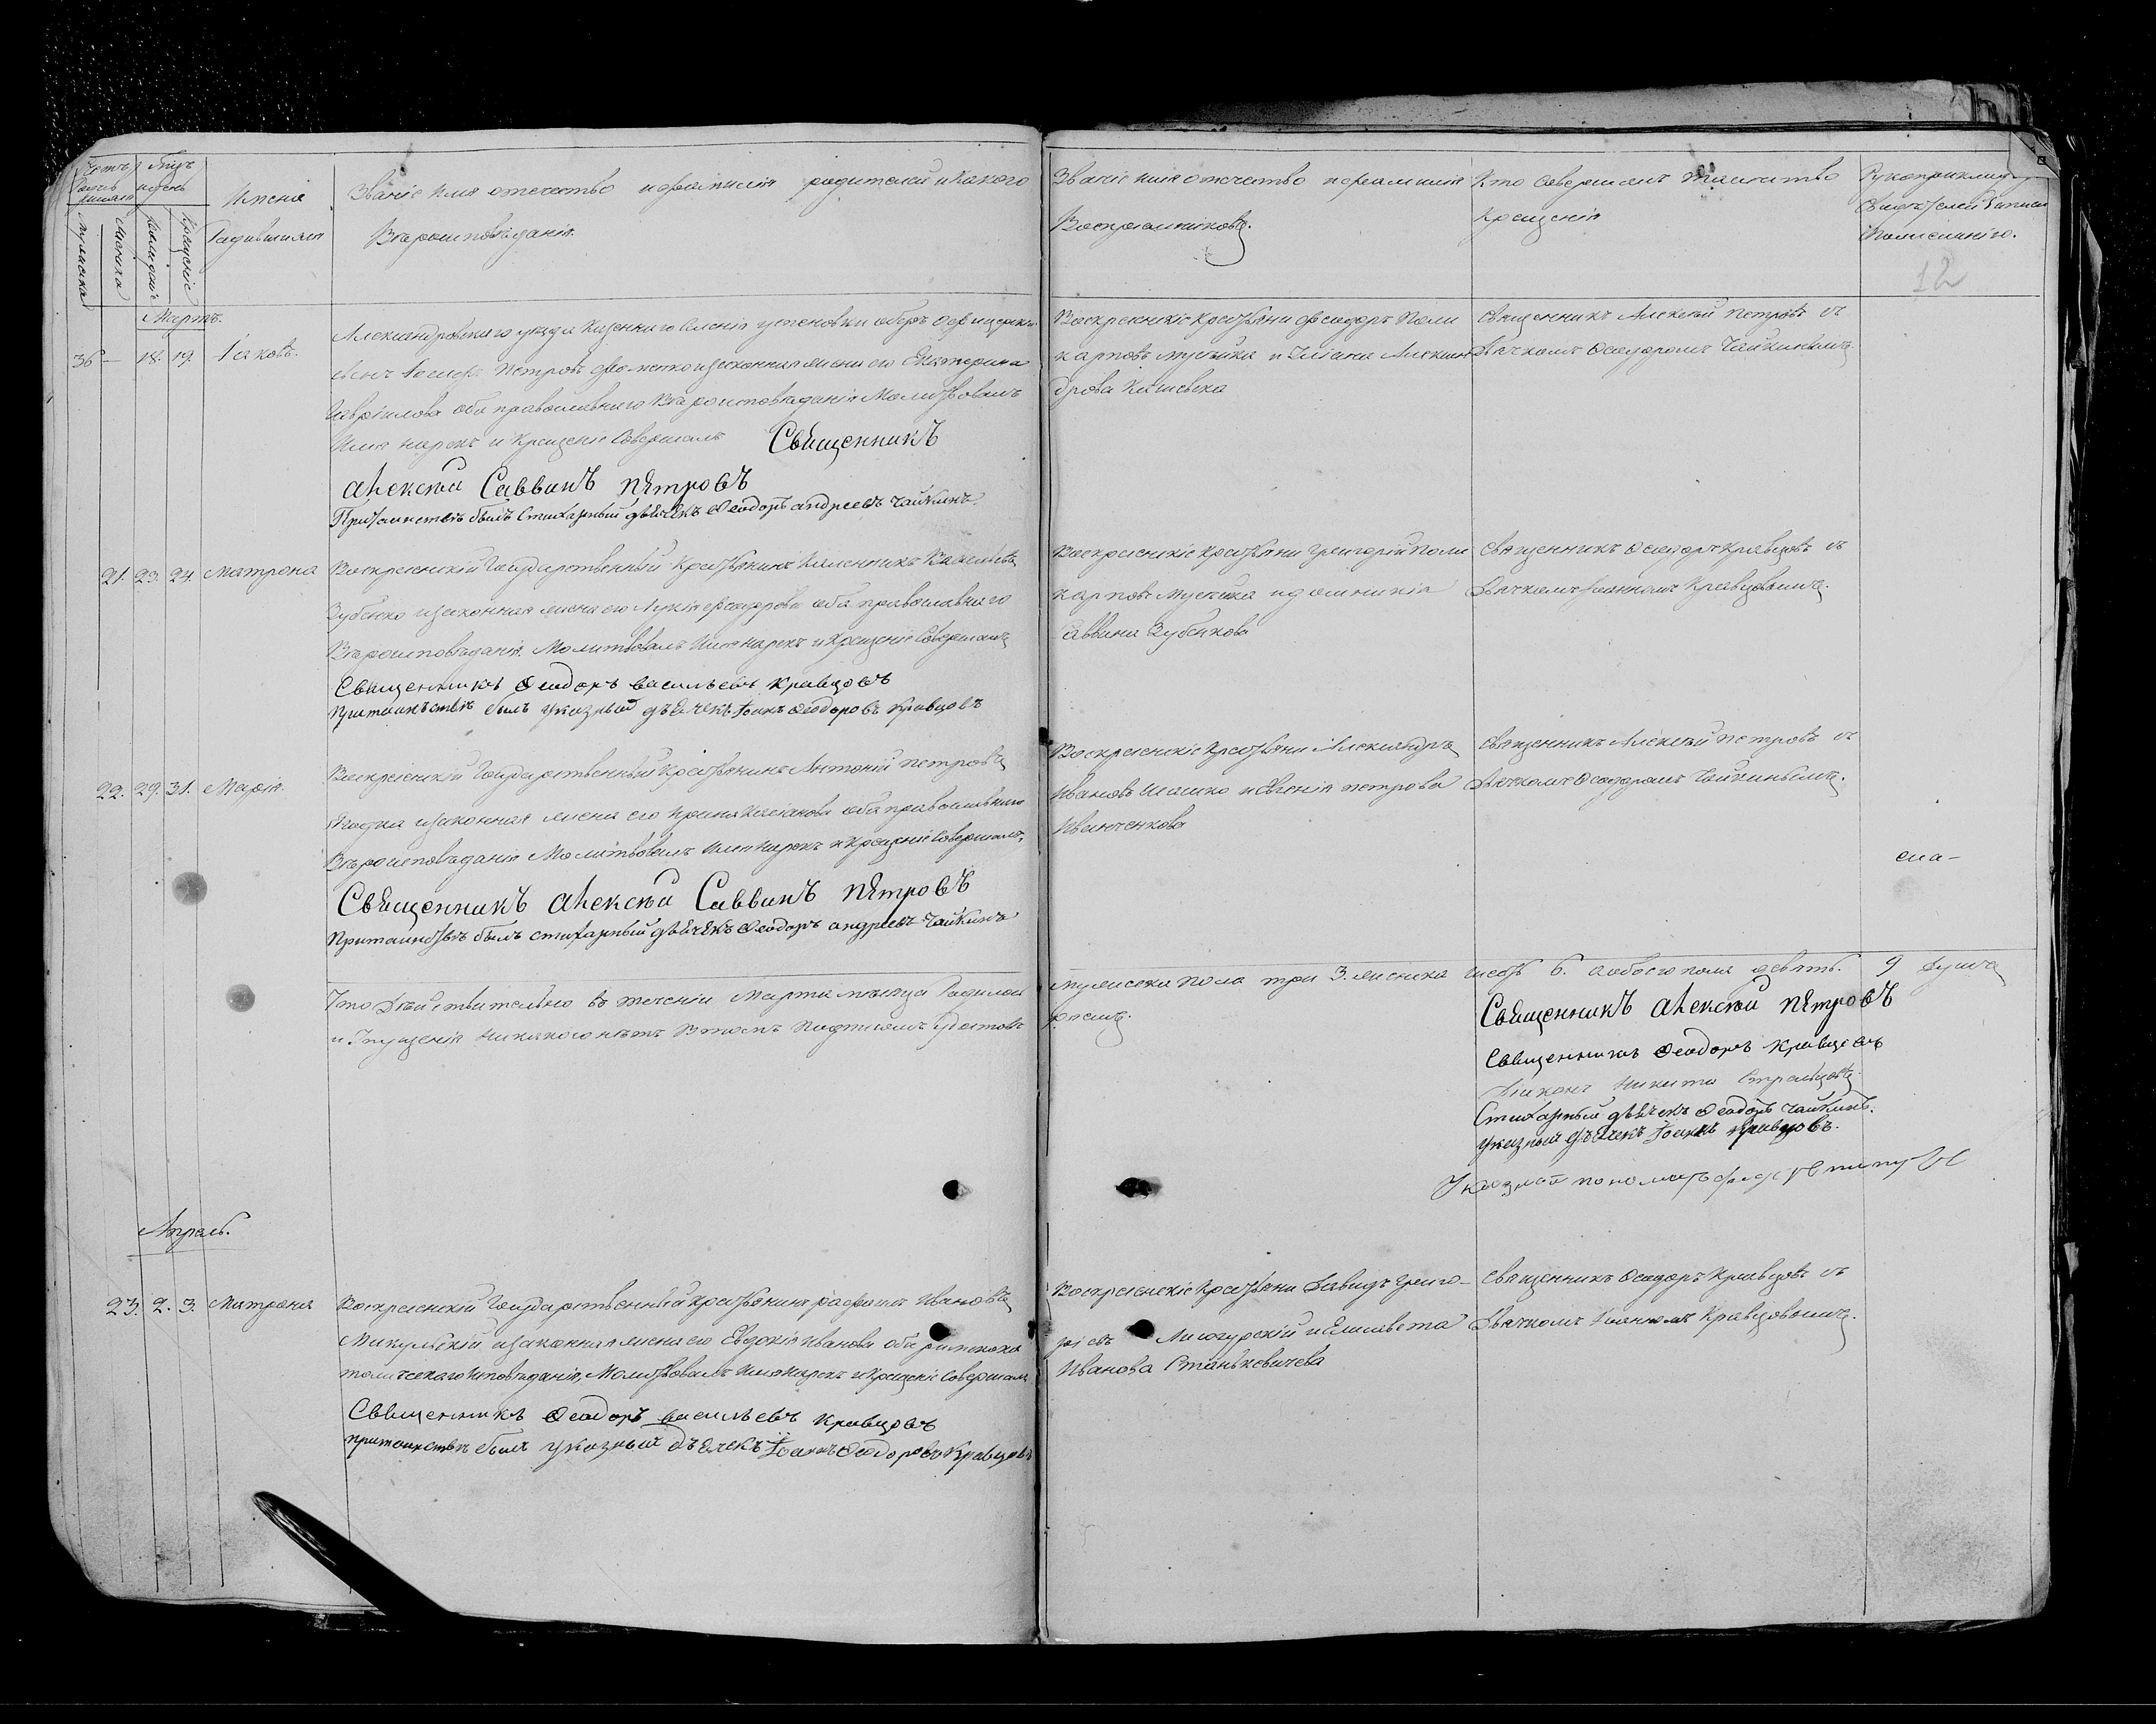 Счетъ Родившихся
Мѣсяцъ и день
Имена Родившихся
Званіе Имя отечество и фамилія родителей и какого
Вѣроисповѣданія.
мужеска
женска
рожденія
крещенія
Званіе имя отечество и фамилія
Воспріемниковъ.
Кто совершалъ таинство
крещенія
Рукоприкладство
Свидѣтелей записи
по желанію.
12
Мартъ.
36 — 18. 19. Іаковъ.
Александровскаго уѣзда Казеннаго Селенія
Петровъ и законная жена его Екатерина
Гавріилова оба православнаго Вѣроисповѣданія Молитвовалъ
Имя нарекъ и крещеніе Совершалъ Священникъ
алексѣй Саввинъ пѣтровъ
При таинствѣ былъ Стихарный дьячекъ Ѳеодоръ андреевъ чайкинъ
Воскресенскіе Крестьяне Феодоръ Поли
карповъ Мусѣнка и Уліана Алексан
дрова
Священникъ Алексѣй Петровъ съ
Дьячкомъ Ѳеодоромъ Чайкинымъ.
21. 23. 24. Матрона
Воскресенскій Государственный Крестьянинъ Калинникъ Васильевъ
Зубенко и законная жена его Лукія Феодорова оба православнаго
Вѣроисповѣданія. Молитвовалъ Имя нарекъ и Крещеніе Совершалъ
Священникъ Ѳеодоръ васильевъ кравцовъ
при таинствѣ былъ указный дьячекъ Іоанъ Ѳеодоровъ кравцовъ
Воскресенскіе Крестьяне Григорій Поли
карповъ Мусѣнка и Домникія
Саввина Зубенкова
Священникъ Ѳеодоръ Кравцовъ съ
Дьячкомъ Іоанномъ Кравцовымъ.
22. 29. 31. Марія.
Воскресенскій Государственный Крестьянинъ Антоній петровъ
и законная жена его Ирина оба православнаго
Вѣроисповѣданія Молитвовалъ Имя Нарекъ и Крещеніе Совершалъ
Священникъ алексѣй Саввинъ пѣтровъ
При таинствѣ былъ стихарный дьячекъ Ѳеодоръ андреевъ чайкинъ
Воскресенскіе Крестьяне Александръ
Ивановъ и Евгенія петрова
Иванченкова
Священникъ Алексѣй Петровъ съ
Дьячкомъ Ѳеодоромъ Чайкинымъ.
Что Дѣйствительно въ теченіи Марта мѣсяца Родилось
мужеска пола три 3. женска шесть 6. а обоего пола девять. 9 душъ
и Упущенія никакого нѣтъ Въ томъ Подписомъ
Священникъ алексѣй пѣтровъ
Священникъ Ѳеодоръ Кравцовъ
Діаконъ Никита Стрельцовъ
Стихарный дьячекъ Ѳеодоръ чайкинъ.
указный дьячекъ Іоаннъ кравцовъ.
Указной пономарь
Апрель.
23. 2. 3. Матрона
Воскресенскій Государственный Крестьянинъ Рафаилъ Ивановъ
Микульскій и законная жена его Евдокія Иванова оба римскока
толическаго Исповѣданія, Молитвовалъ Имя Нарекъ и Крещеніе Совершалъ
Священникъ Ѳеодоръ васильевъ кравцовъ
при таинствѣ былъ указный дьячекъ Іоаннъ Ѳеодоровъ Кравцовъ
Воскресенскіе Крестьяне Давидъ Григо-
ріевъ Лисогурскій и Елисавета
Иванова Станкевичева
Священникъ Ѳеодоръ Кравцовъ съ
Дьячкомъ Іоанномъ Кравцовымъ.